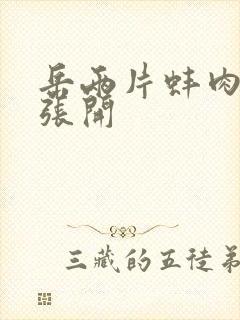 岳兩片蚌肉
張開
三藏的五徒弟